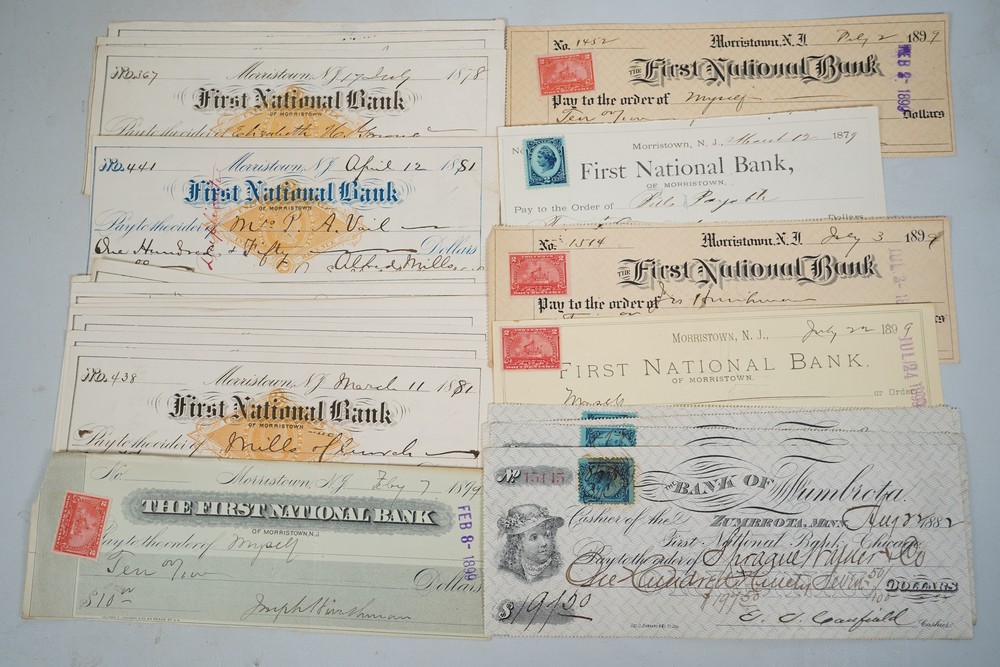 No. 367
Morristown, N.J. 17 July 1878
First National Bank
OF MORRISTOWN
Pay to the order of Elizabeth
No. 441
Morristown, N.J. April 12 1881
First National Bank
OF MORRISTOWN
Pay to the order of Mrs P. A. Vail
One Hundred & Fifty Dollars
Alfred Mills
No. 438
Morristown, N.J. March 11 1881
First National Bank
OF MORRISTOWN
Pay to the order of Mills
No.
Morristown, N.J. Feby 7 1899
THE FIRST NATIONAL BANK
OF MORRISTOWN, N.J.
Pay to the order of Myself
Ten
Dollars
$10
Joseph Hinchman
FEB 8-1899
No. 1452
Morristown, N.J. Feby 2 1899
THE First National Bank
Pay to the order of Myself
Ten
Dollars
FEB 2-1899
Morristown, N.J., March 12 1879
First National Bank,
OF MORRISTOWN
Pay to the Order of Bills Payable
Dollars
2 CENTS
No. 1514
Morristown, N.J. July 3 1899
THE First National Bank
Pay to the order of
Dollars
JUL 3-
MORRISTOWN, N.J., July 22 1899
FIRST NATIONAL BANK.
OF MORRISTOWN.
Myself
or Order
JUL 24 1899
No.
BANK OF Zumbrota.
ZUMBROTA, MINN. Aug 22 1882
Cashier of the
First National Bank, Chicago
Pay to the order of Sprague Warner & Co
One Hundred Ninety Seven 50/100 DOLLARS
$197.50
$197 50
Canfield Cashier